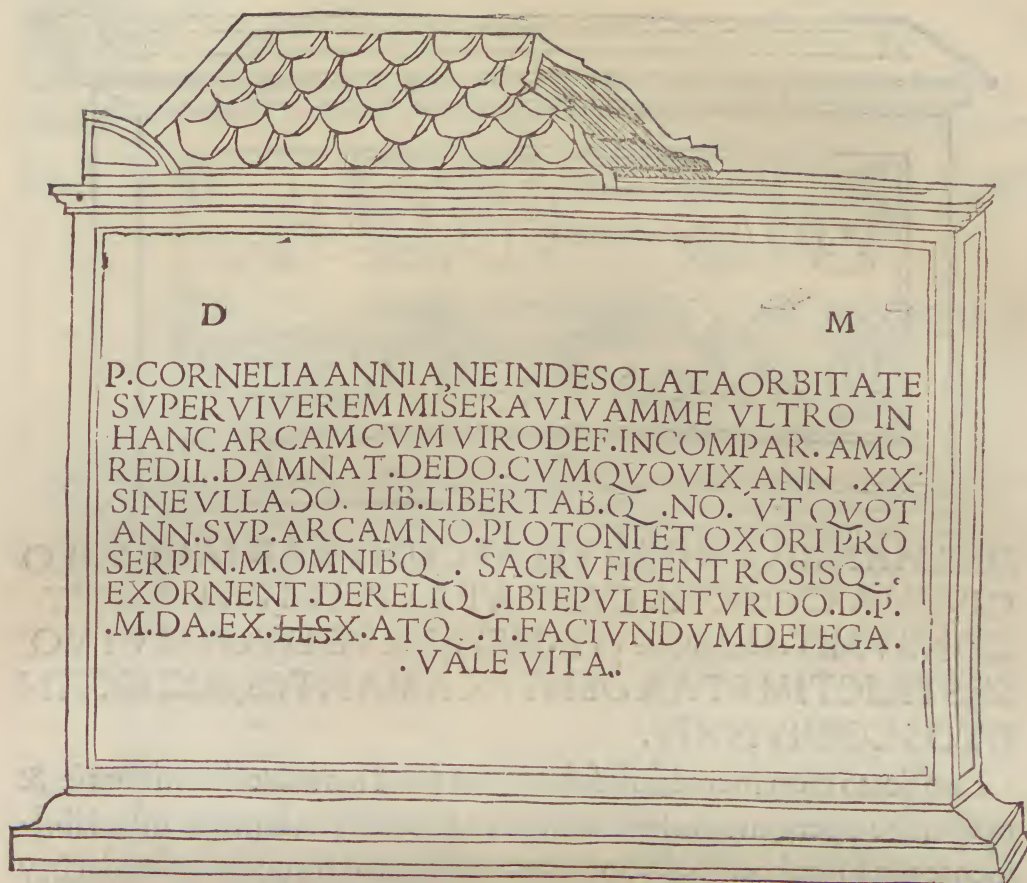 D M
P.CORNELIA ANNIA, NE IN DESOLATA ORBITATE
SVPERVIVEREM MISERA VIVAM ME VLTRO IN
HANC ARCAM CVM VIRO DEF. INCOMPAR. AMO
RE DIL. DAMNAT. DEDO. CVM QVO VIX ANN .XX
SINE VLLA ƆO. LIB. LIBERTAB.Q .NO. VT QVOT
ANN.SVP.ARCAM NO.PLOTONI ET OXORI PRO
SERPIN.M.OMNIBQ . SACRVFICENT ROSISQ .
EXORNENT.DE RELIQ .IBI EPVLENTVR DO.D.P.
.M.DA.EX.HSX.ATQ .T.FACIVNDVM DELEGA.
. VALE VITA..